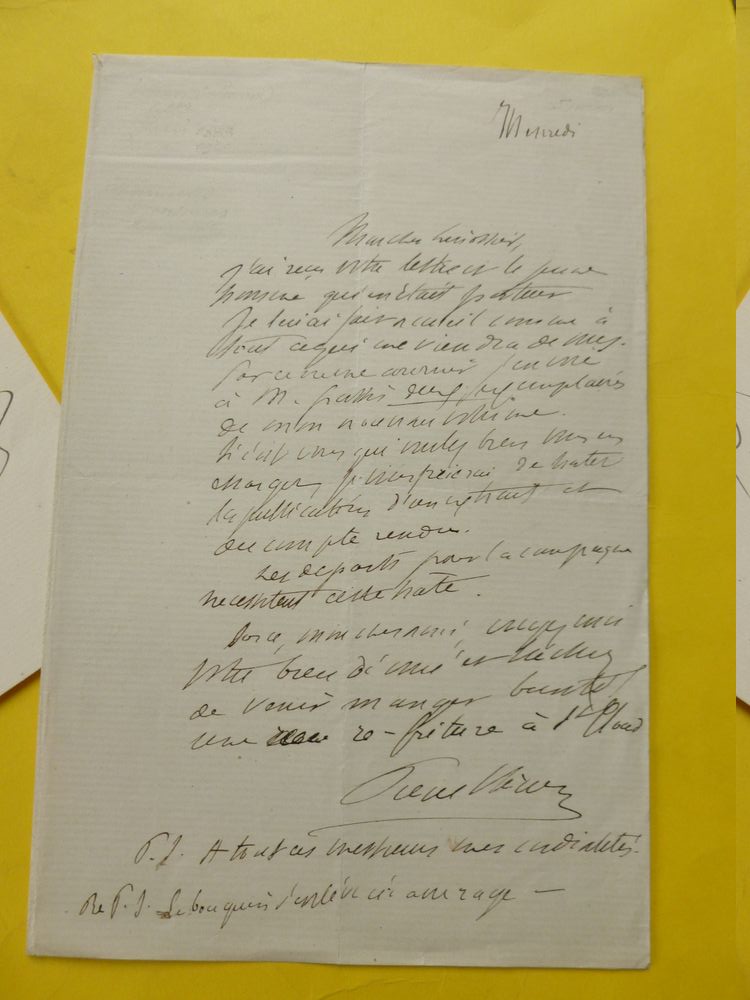 Mercredi
Mon cher
J'ai reçu votre lettre et le jeune
homme qui m'était porteur
Je lui ai fait accueil comme à
tout ce qui me viendra de vous.
Par ce même courrier j'envoie
à M. deux exemplaires
de mon nouveau volume.
Si c'est vous qui voulez bien vous en
charger, je vous prierai de hater
la publication d'un extrait et
du compte rendu.
Les départs pour la campagne
necessitent cette hate.
mon cher ami, croyez moi
votre bien dévoué et tâchez
de venir manger bientôt
une re-friture à St Cloud
P.S. A tous ces messieurs mes cordialités.
Re P.S. Le bouquin s'enlève avec rage —